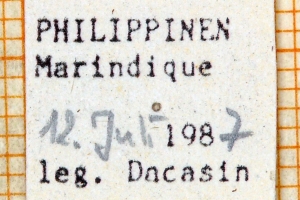 PHILIPPINEN
Marindique
12. Juli 1987
leg. Dacasin